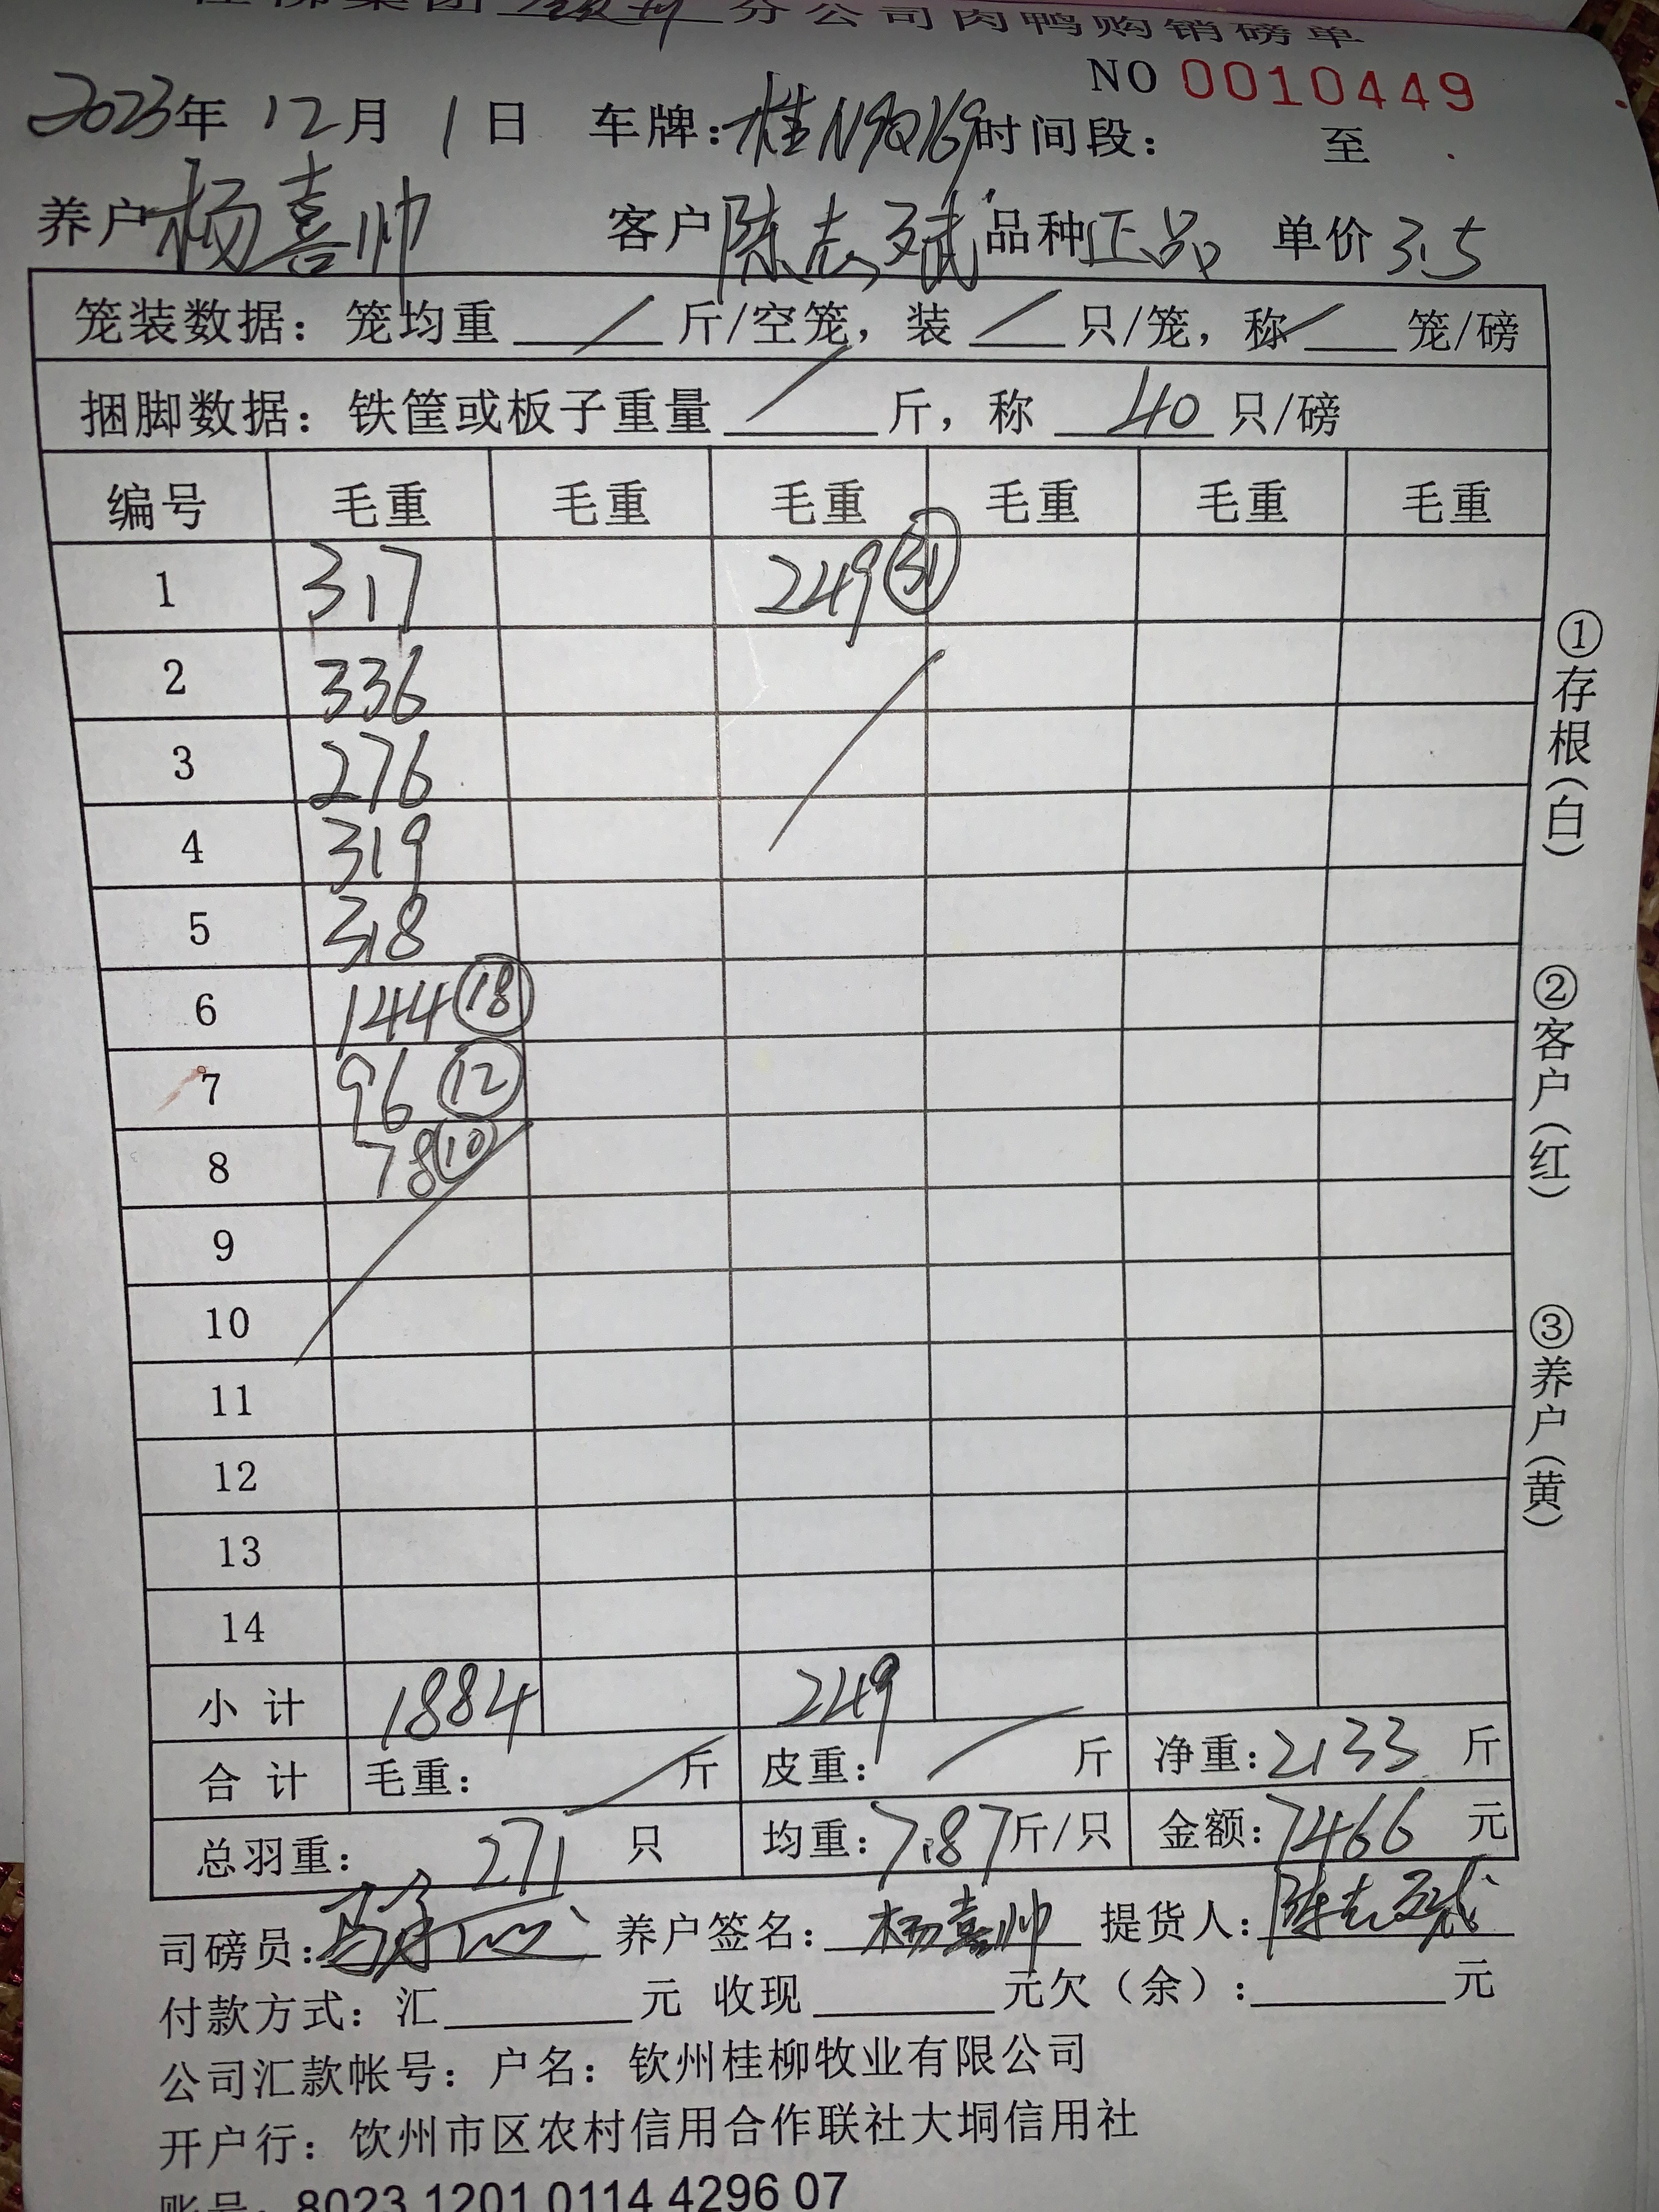 桂柳集团 钦州 分公司肉鸭购销磅单
NO 0010449
2023年 12月 1日 车牌: 时间段: 至
养户 杨喜帅 客户 陈志斌 品种 正品 单价 3.5
笼装数据: 笼均重 / 斤/空笼, 装 / 只/笼, 称 / 笼/磅
捆脚数据: 铁筐或板子重量 / 斤, 称 40 只/磅
编号 毛重 毛重 毛重 毛重 毛重 毛重
1 317 249 ㉛
2 336
3 276
4 319
5 318
6 144 ⑱
7 96 ⑫
8 78 ⑩
9
10
11
12
13
14
小 计 1884 249
合 计 毛重: / 斤 皮重: / 斤 净重: 2133 斤
总羽重: 271 只 均重: 7.87 斤/只 金额: 7466 元
司磅员: 养户签名: 杨喜帅 提货人: 陈志斌
付款方式: 汇 元 收现 元欠(余): 元
公司汇款帐号: 户名: 钦州桂柳牧业有限公司
开户行: 钦州市区农村信用合作联社大垌信用社
账号: 8023 1201 0114 4296 07
①存根(白)
②客户(红)
③养户(黄)